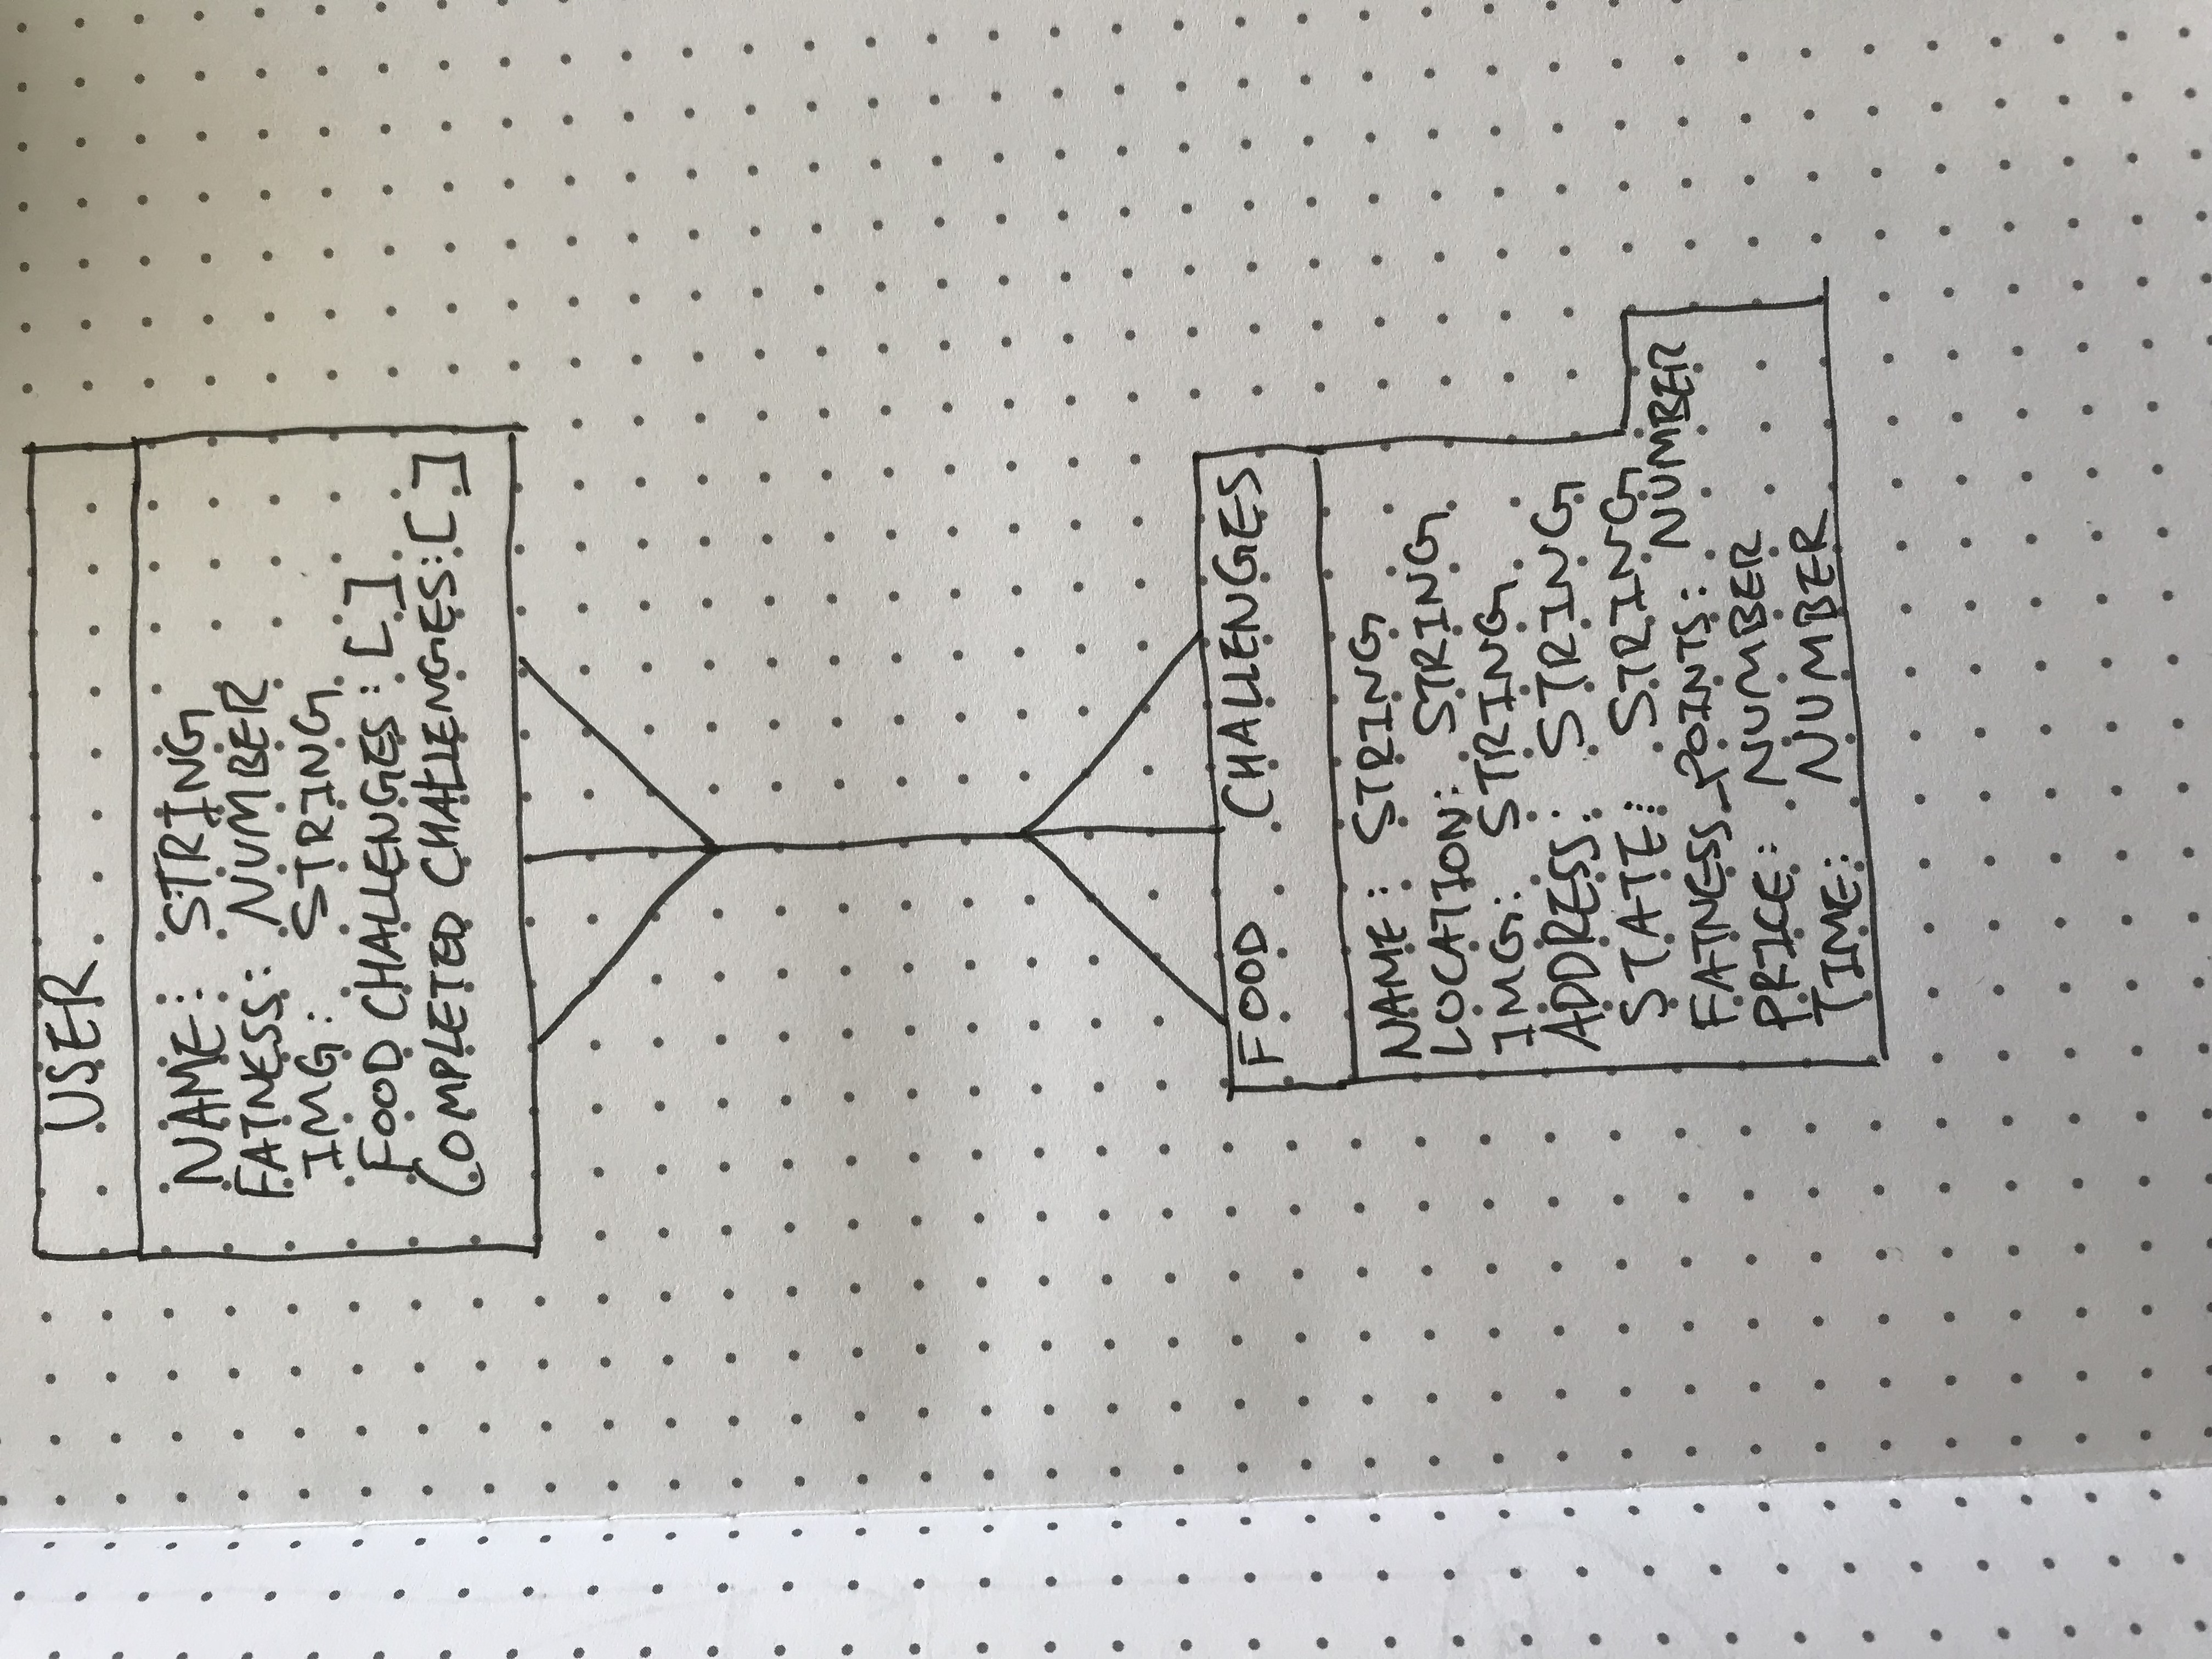 USER
NAME: STRING
FATNESS: NUMBER
IMG: STRING
FOOD CHALLENGES: []
COMPLETED CHALLENGES: []
FOOD CHALLENGES
NAME: STRING
LOCATION: STRING
IMG: STRING
ADDRESS: STRING
STATE: STRING
FATNESS_POINTS: NUMBER
PRICE: NUMBER
TIME: NUMBER